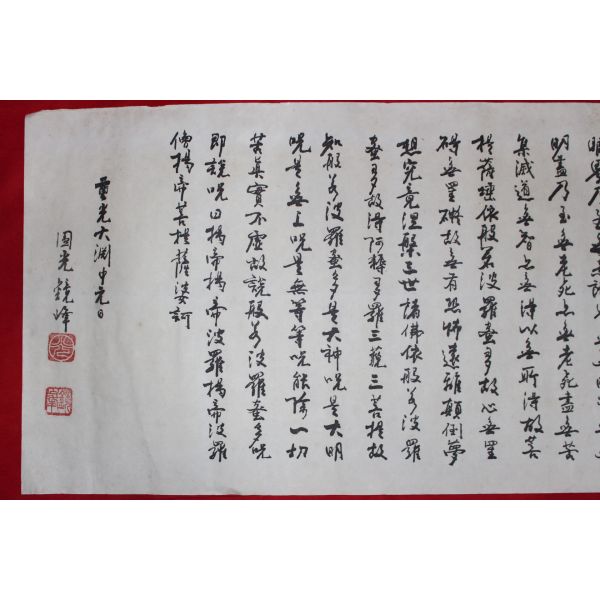 明盡乃至無老死亦無老死盡無苦
集滅道無智亦無得以無所得故菩
提薩埵依般若波羅蜜多故心無罣
碍無罣碍故無有恐怖遠離顛倒夢
想究竟涅槃三世諸佛依般若波羅
蜜多故得阿耨多羅三藐三菩提故
知般若波羅蜜多是大神呪是大明
呪是無上呪是無等等呪能除一切
苦眞實不虛故說般若波羅蜜多呪
即說呪曰揭帝揭帝波羅揭帝波羅
僧揭帝菩提薩婆訶
重光大淵中元日
圓光 鏡峰